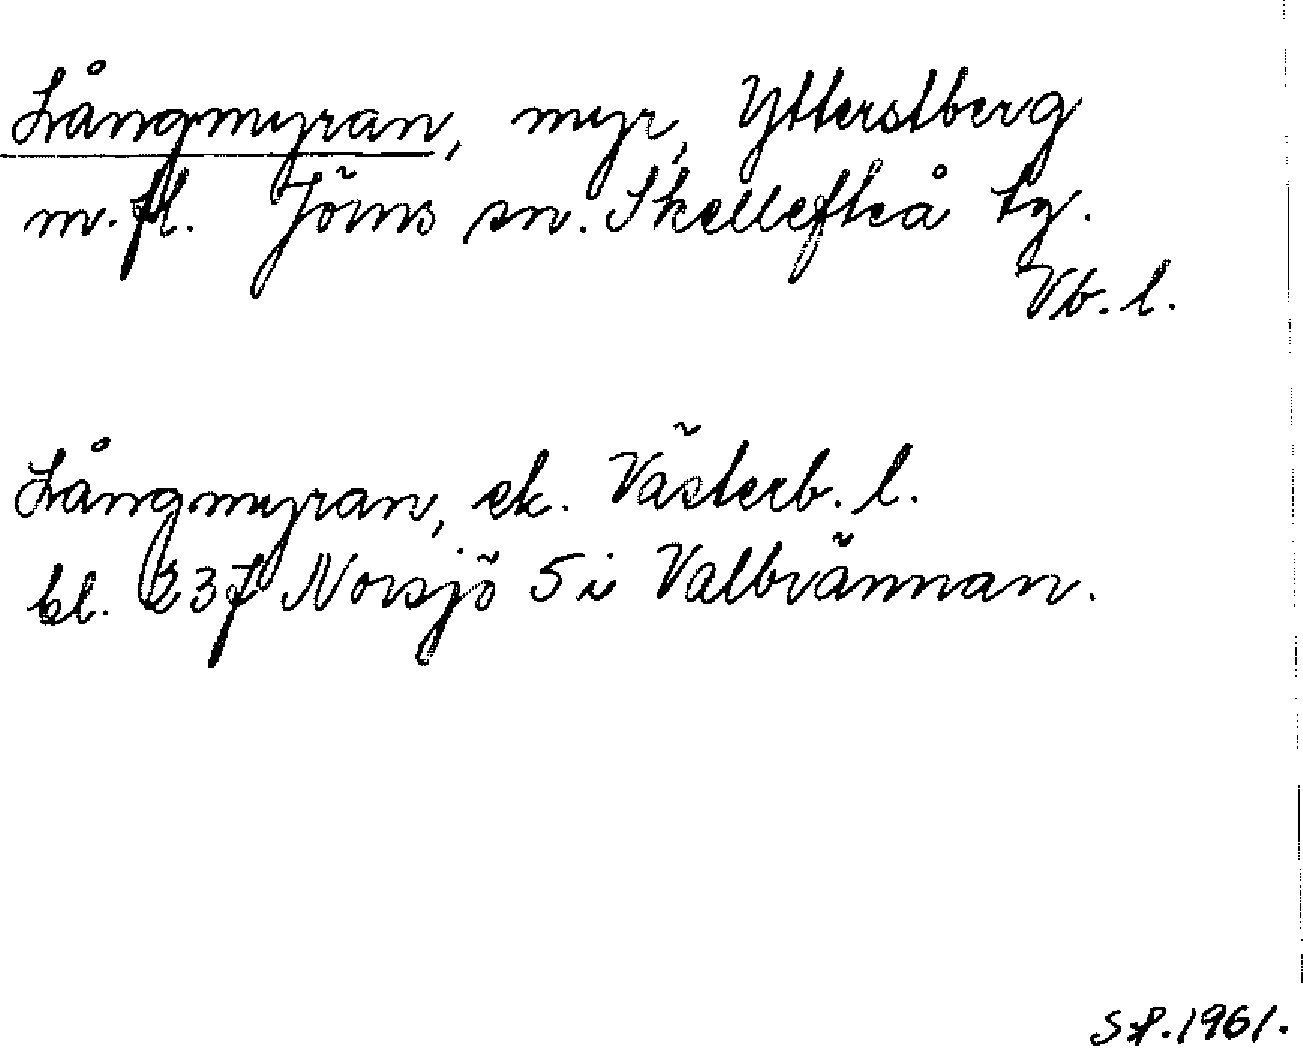 Långmyran, myr, Ytterstberg
m.fl. Jörns sn. Skellefteå tg.
Vb. l.
Långmyran, ek. Västerb. l.
bl. 237 Norsjö 5 i Valbrännan.
S.P. 1961.